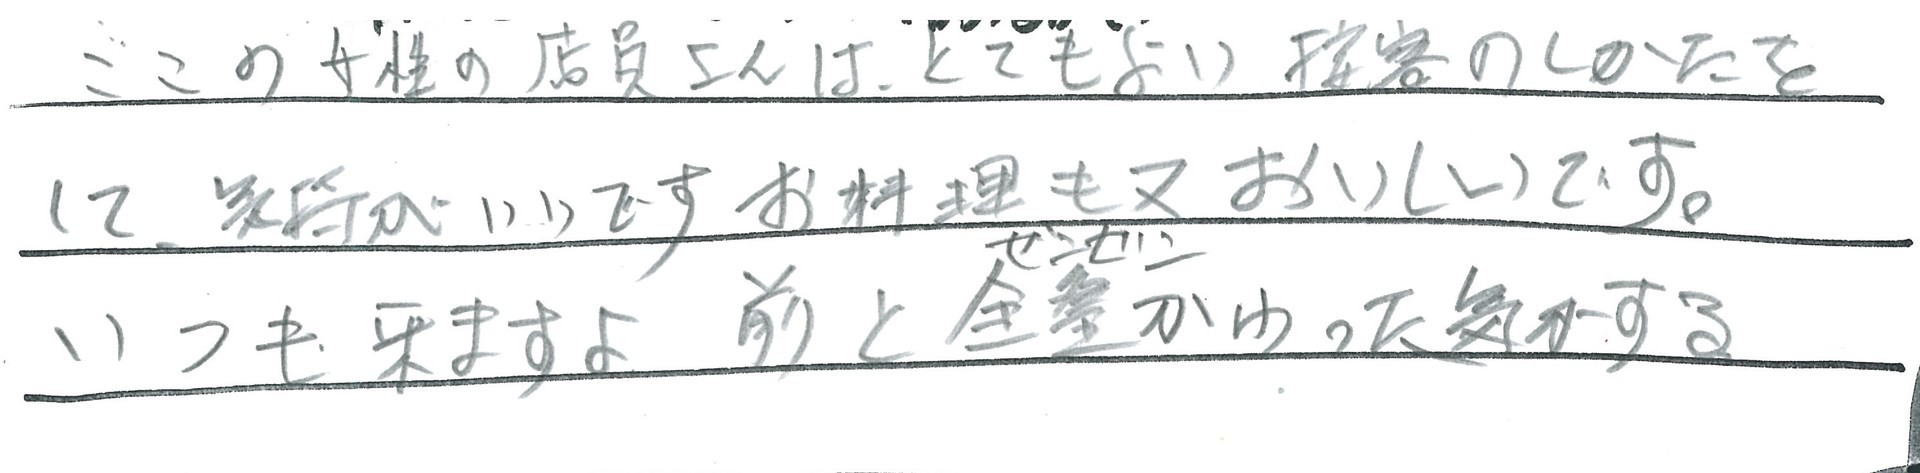 ここの女性の店員さんは、とてもよい接客のしかたを
して、気持がいいですお料理も又おいしいです。
ゼンゼン
いつも来ますよ 前と全然かわった気がする